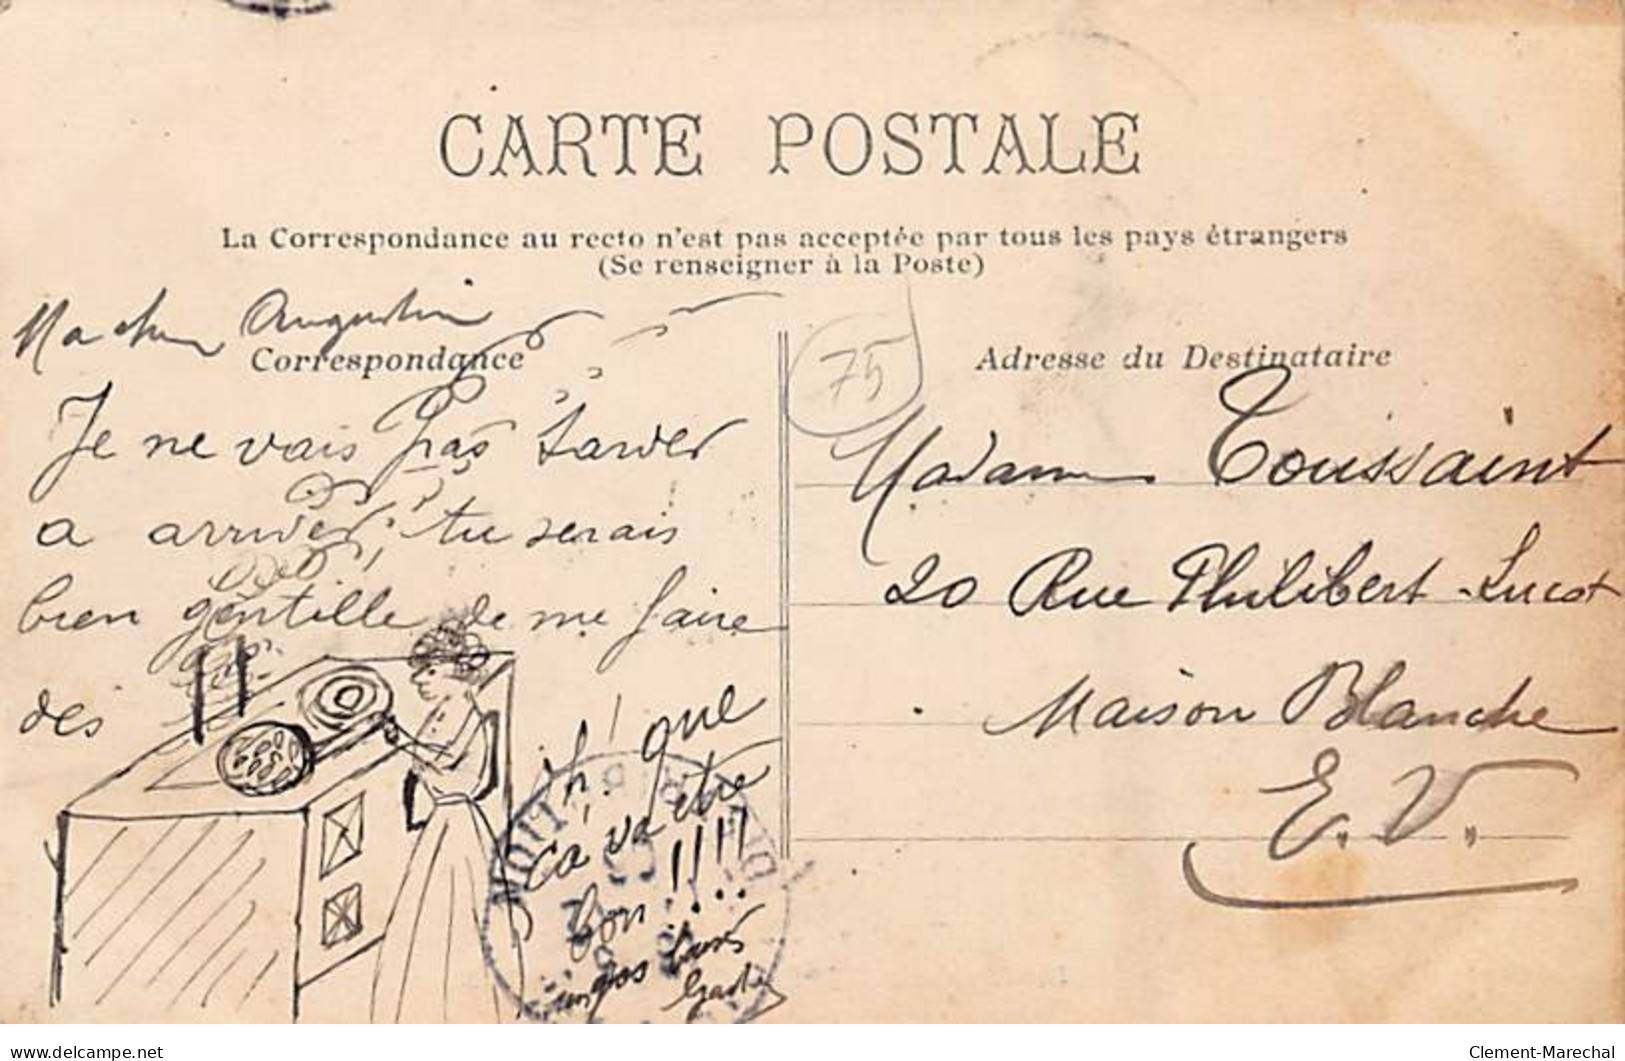 CARTE POSTALE
La Correspondance au recto n'est pas acceptée par tous les pays étrangers
(Se renseigner à la Poste)
Ma chere Augustine
Correspondance
Je ne vais pas tarder
a arriver, tu serais
bien gentille de me faire
des
h! que
ça va être
bon!!!!
un gros
75
Adresse du Destinataire
Madame Toussaint
20 Rue Philibert-Lucot
Maison Blanche
E.V.
delcampe.net
Clement-Marechal